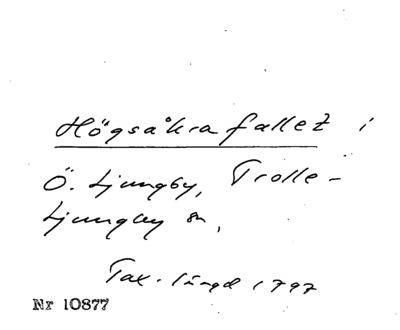 Högsåkra fallet i
Ö. Ljungby, Trolle-
Ljungby sn,
Tax. längd 1797
Nr 10877